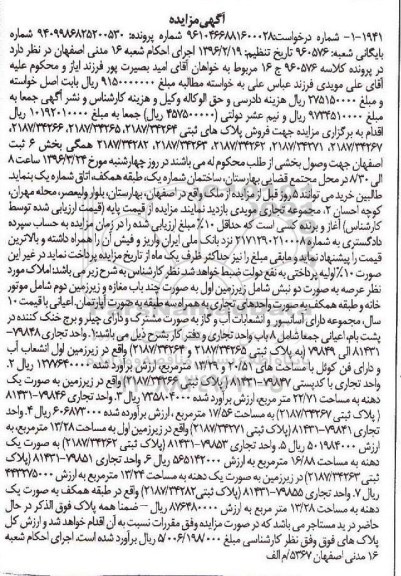 آگهی مزایده
۱۹۴۱-۱- شماره درخواست: ۹۶۱۰۴۶۶۸۸۱۶۰۰۰۲۸ شماره پرونده: ۹۴۰۹۹۸۶۸۲۵۲۰۰۵۳۰ شماره
بایگانی شعبه: ۹۶۰۵۷۶ تاریخ تنظیم: ۱۳۹۶/۲/۱۹ اجرای احکام شعبه ۱۶ مدنی اصفهان در نظر دارد
در پرونده کلاسه ۹۶۰۵۷۶ ج ۱۶ مربوط به خواهان آقای امید بصیرت پور فرزند ایاز و محکوم علیه
آقای علی مویدی فرزند عباس علی به خواسته مطالبه مبلغ ۹۱۵۰۰۰۰۰۰۰ ریال بابت اصل خواسته
و مبلغ ۲۷۵۱۵۰۰۰۰ ریال هزینه دادرسی و حق الوکاله وکیل و هزینه کارشناس و نشر آگهی جمعا به
مبلغ ۹۷۳۴۵۱۰۰۰۰ ریال و نیم عشر دولتی (۴۵۷۵۰۰۰۰۰ ریال) جمعا به مبلغ ۱۰۱۹۲۰۱۰۰۰۰ ریال
اقدام به برگزاری مزایده جهت فروش پلاک های ثبتی ۲۱۸۷/۳۴۲۶۴، ۲۱۸۷/۳۴۲۶۵، ۲۱۸۷/۳۴۲۶۶،
۲۱۸۷/۳۴۲۶۷، ۲۱۸۷/۳۴۲۷۱، ۲۱۸۷/۳۴۲۶۲، ۲۱۸۷/۳۴۲۶۳، ۲۱۸۷/۳۴۲۸۲ همگی بخش ۶ ثبت
اصفهان جهت وصول بخشی از طلب محکوم له می باشند در روز چهارشنبه مورخ ۱۳۹۶/۳/۲۴ ساعت ۸
الی ۸/۳۰ در محل مجتمع قضایی بهارستان، ساختمان شماره یک، طبقه همکف، اتاق شماره یک بنماید.
طالبین خرید می توانند ۵ روز قبل از مزایده از ملک واقع در اصفهان، بهارستان، بلوار ولیعصر، محله مهران،
کوچه احسان ۲، مجموعه تجاری مویدی بازدید نمایند. مزایده از قیمت پایه (قیمت ارزیابی شده توسط
کارشناس) آغاز و برنده کسی است که حداقل ۱۰٪ مبلغ ارزیابی شده را در زمان مزایده به حساب سپرده
دادگستری به شماره ۲۱۷۱۲۹۰۲۱۰۰۰۸ نزد بانک ملی ایران واریز و فیش آن را همراه داشته و بالاترین
قیمت را پیشنهاد نماید و مابقی مبلغ را نیز حداکثر ظرف یک ماه از تاریخ مزایده پرداخت نماید در غیر این
صورت ۱۰٪ اولیه پرداختی به نفع دولت ضبط خواهد شد. نظر کارشناس به شرح زیر می باشد: املاک مورد
نظر عرصه به صورت دو نبش شامل زیرزمین اول به صورت چند باب مغازه و زیرزمین دوم شامل موتور
خانه و طبقه همکف به صورت واحدهای تجاری به همراه سه طبقه به صورت آپارتمان. اعیانی با قیمت ۱۰
سال، مجموعه دارای آسانسور و انشعابات آب و گاز به صورت مشترک و دارای چیلر و برج خنک کننده در
پشت بام، اعیانی جمعا شامل ۸ باب واحد تجاری و دفتر کار بشرح ذیل می باشد: ۱. واحد تجاری ۷۹۸۴۸-
۸۱۴۳۱ الی ۷۹۸۴۹ (به پلاک ثبتی ۲۱۸۷/۳۴۲۶۵ و ۲۱۸۷/۳۴۲۶۴) واقع در زیرزمین اول انشعاب آب
و دارای فن کوئل با مساحت های ۲۰/۵۱ و ۱۳/۲۹ مترمربع، ارزش برآورده شده ۱۲۷۷۶۴۰۰۰۰ ریال ۲.
واحد تجاری با کدپستی ۷۹۸۴۷-۸۱۴۳۱ (پلاک ثبتی ۲۱۸۷/۳۴۲۶۶) واقع در زیرزمین به صورت یک
دهنه به مساحت ۲۲/۷۱ متر مربع، ارزش برآورد شده ۷۳۵۸۰۴۰۰۰ ریال ۳. واحد تجاری ۷۹۸۴۶-۸۱۴۳۱
( پلاک ثبتی ۲۱۸۷/۳۴۲۶۷) به مساحت ۱۷/۵۶ مترمربع، ارزش برآورده شده ۶۰۶۸۷۳۰۰۰ ریال ۴. واحد
تجاری ۷۹۸۴۱-۸۱۴۳۱ (پلاک ثبتی ۲۱۸۷/۳۴۲۷۱) واقع در زیرزمین اول به مساحت ۱۳/۲۸ مترمربع، به
ارزش ۵۰۱۹۸۴۰۰۰ ریال ۵. واحد تجاری ۷۹۸۵۳-۸۱۴۳۱ (پلاک ثبتی ۲۱۸۷/۳۴۲۶۲) به صورت یک
دهنه به مساحت ۱۶/۸۸ مترمربع به ارزش ۵۶۵۱۴۲۰۰۰ ریال ۶. واحد تجاری ۷۹۸۵۱-۸۱۴۳۱ (پلاک
ثبتی ۲۱۸۷/۳۴۲۶۳) در زیرزمین به صورت یک دهنه به مساحت ۱۳/۲۴ مترمربع به ارزش ۴۴۳۳۷۵۰۰۰
ریال ۷. واحد تجاری ۷۹۸۵۵-۸۱۴۳۱ (پلاک ثبتی ۲۱۸۷/۳۴۲۸۲) واقع در طبقه همکف به صورت یک
دهنه به مساحت ۱۳/۲۸ متر مربع به ارزش ۸۷۶۴۸۰۰۰۰ ریال — ضمنا همه پلاک فوق الذکر در حال
حاضر در ید مستاجر می باشد که در صورت مزایده وفق مقررات نسبت به آن اقدام خواهد شد و ارزش کل
پلاک های فوق وفق نظر کارشناسی مبلغ ۵/۰۰۶/۱۹۸/۰۰۰ ریال برآورد شده است. اجرای احکام شعبه
۱۶ مدنی اصفهان ۵۳۶۷/م الف